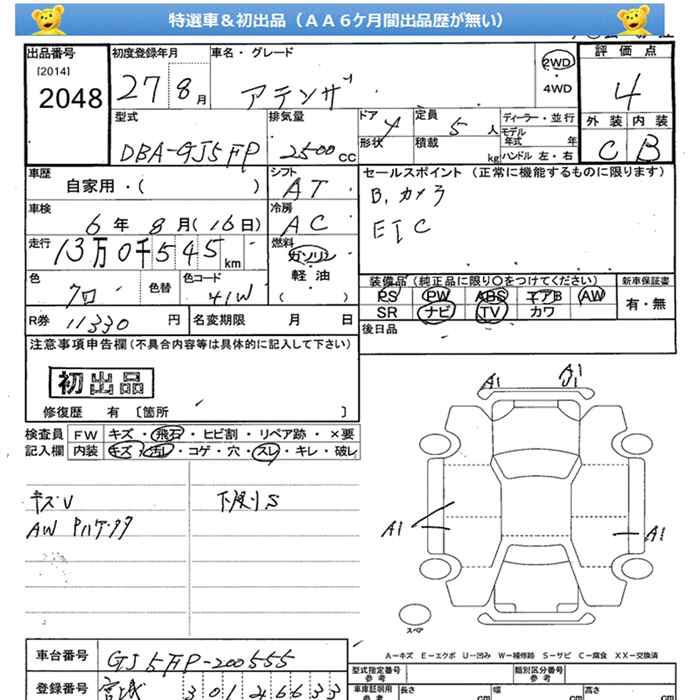 特選車＆初出品（ＡＡ６ケ月間出品歴が無い）
出品番号 初度登録年月 車名・グレード 2WD 評価点
[2014]
2048 27 8月 アテンザ ・4WD 4
型式 排気量 ドア 4 定員 5人 ディーラー・並行 外装 内装
DBA-GJ5FP 2500cc 形状 積載 kg モデル年式 年 ハンドル 左・右 C B
車歴 シフト セールスポイント（正常に機能するものに限ります）
自家用・( ) AT B,カメラ
車検 冷房 ETC
6年 8月(16日) AC
走行 燃料
13万0千545km ガソリン
軽油
( )
色 色替 色コード 装備品（純正品に限り○をつけてください） 新車保証書
クロ 41W PS PW ABS エアB AW 有・無
SR ナビ TV カワ
R券 11330円 名変期限 月 日 後日品
注意事項申告欄（不具合内容等は具体的に記入して下さい）
初出品
修復歴 有 〔箇所 〕
検査員 FW キズ・飛石・ヒビ割・リペア跡・×要
記入欄 内装 キズ・汚レ・コゲ・穴・スレ・キレ・破レ
キズV 下廻りS
AW
A1 A1
A1 A1
スペア
A－キズ E－エクボ U－凹み W－補修跡 S－サビ C－腐食 XX－交換済
車台番号 GJ5FP-200555
登録番号 宮城 301 4 6633
型式指定番号 参考 類別区分番号 参考
車庫証明用 参考 長さ cm 幅 cm 高さ cm